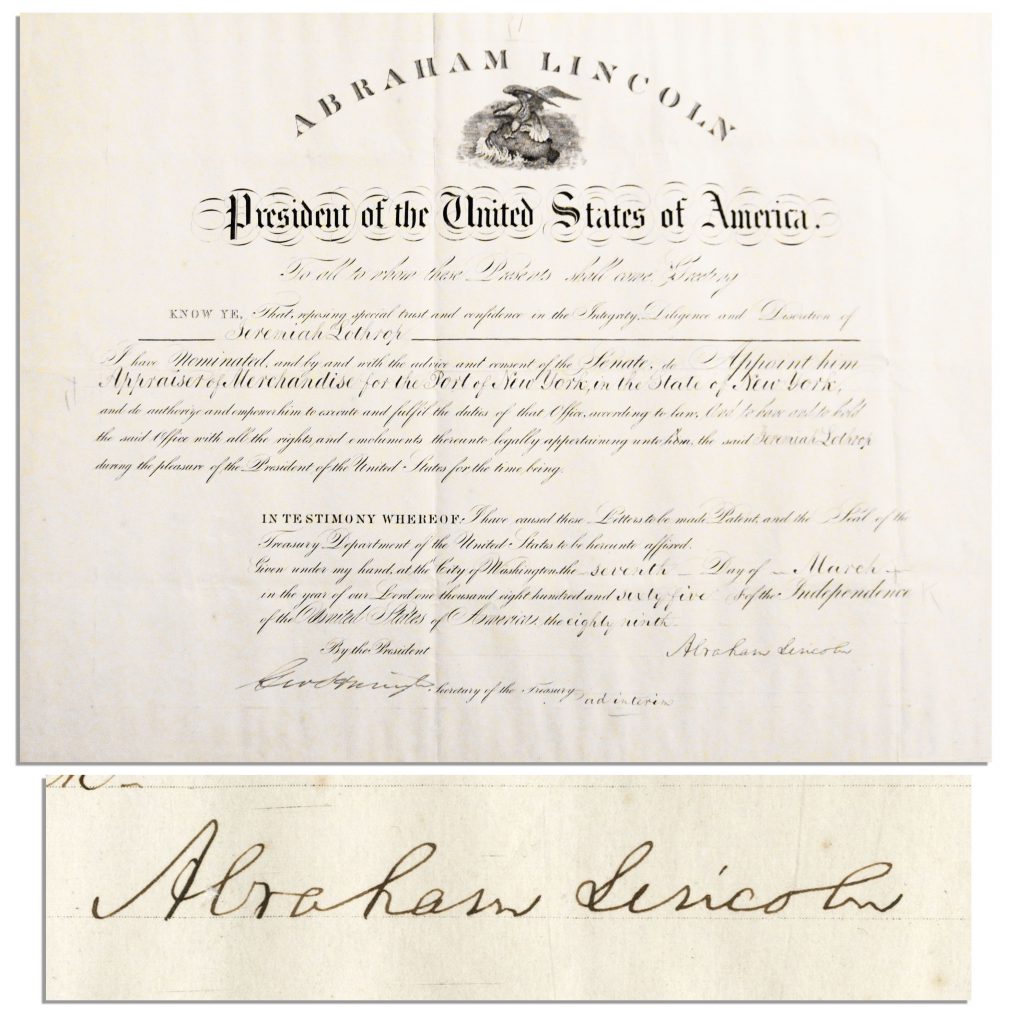 ABRAHAM LINCOLN
President of the United States of America.
To all to whom these Presents shall come Greeting
KNOW YE, That, reposing special trust and confidence in the Integrity, Diligence and Discretion of
Jeremiah Lothrop
I have Nominated, and by and with the advice and consent of the Senate, do Appoint him
Appraiser of Merchandise for the Port of New York, in the State of New York,
and do authorize and empower him to execute and fulfil the duties of that Office, according to law, And to have and to hold
the said Office with all the rights and emoluments thereunto legally appertaining unto him, the said Jeremiah Lothrop
during the pleasure of the President of the United States for the time being.
IN TESTIMONY WHEREOF, I have caused these Letters to be made Patent, and the Seal of the
Treasury Department of the United States to be hereunto affixed.
Given under my hand, at the City of Washington, the seventh Day of March
in the year of our Lord one thousand eight hundred and sixty five & of the Independence
of the United States of America, the eighty ninth
By the President
Abraham Lincoln
Secretary of the Treasury
ad interim
Abraham Lincoln